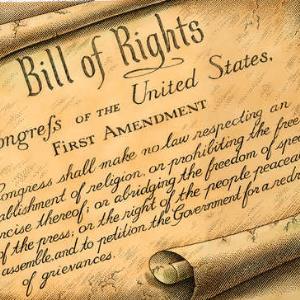 Bill of Rights
Congreſs OF THE United States,
FIRST AMENDMENT
Congress shall make no law respecting an
establishment of religion, or prohibiting the free
exercise thereof; or abridging the freedom of spee
of the press; or the right of the people peaceab
assemble, and to petition the Government for a redr
of grievances.